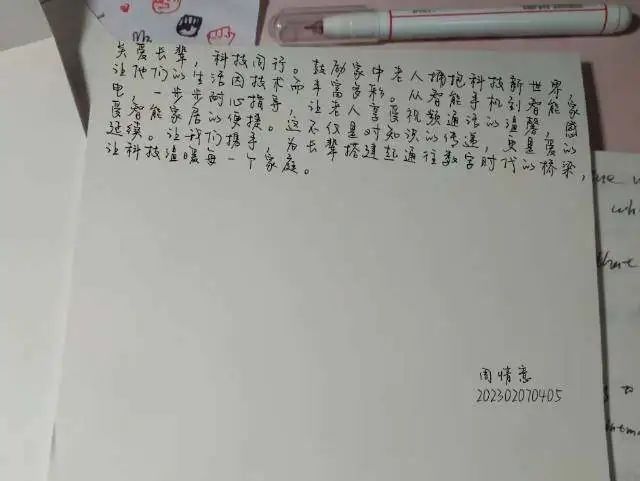 Ma
关爱长辈，科技同行。鼓励家中老人拥抱科技新世界，
让他们的生活因技术而丰富多彩。从智能手机到智能家
电，一步步耐心指导，让老人享受视频通话的温馨，感
受智能家居的便捷。这不仅是对知识的传递，更是爱的
延续。让我们携手，为长辈搭建起通往数字时代的桥梁，
让科技温暖每一个家庭。
周情意
202302070405